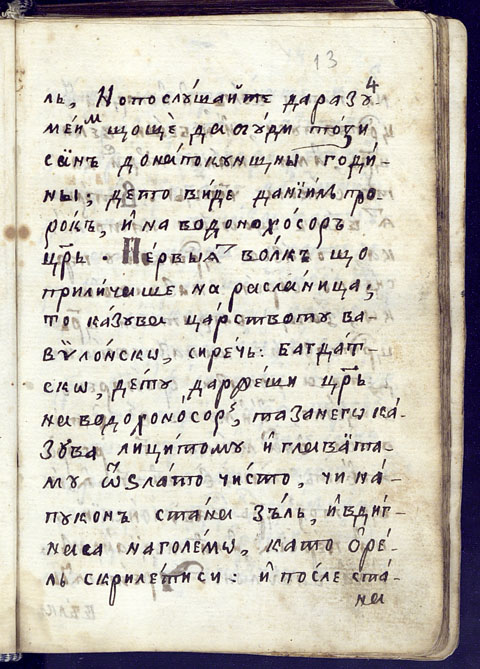 13
4
ль, Но послꙋ́шайте даразꙋ
ме́им що щѐ да сꙋ́ди то́ѕи
са́нъ дона́покꙋнщны годи́-
ны; де́то ви́де данїи́ль про-
ро́къ, и҆ на водонохо́соръ
цр҃ь. Пе́рвыѧ во́лкъ що
прили́чаше на расла́ница;
то ка́зꙋва ца́рството ва-
вѷло́нско, сиречь: багда́т-
ско, де́то дарѱе́ши цр҃ь
на водохоносор, та занего ка́-
зꙋва лици́томꙋ и҆ глава́та-
мꙋ ѿ ѕла́то чи́сто, чи на́-
пꙋконъ ста́на зъ́ль, и҆ вди́г-
на са наголе́мо, като ѻ҆ре́-
ль скриле́тиси: и҆ по́сле ста́-
на